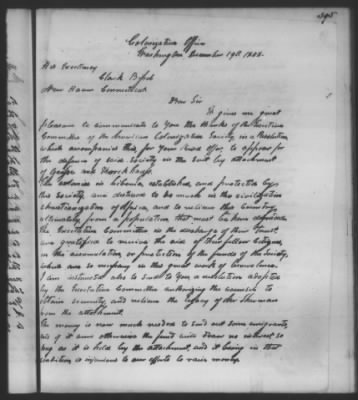 395
Colonization Office
Washington December 19th 1853.
His Excellency
Clark Bissell
New Haven Connecticut
Dear Sir
It gives me great
pleasure to communicate to you the thanks of the Executive
Committee of the American Colonization Society in a Resolution
which accompanies this, for your kind offer, to appear for
the defence of said Society in the suit by attachment
of George and
The colonies in Liberia, established, and protected by
this Society, are destined to be much in the civilization
& christianization of Africa, and to relieve this Country,
ultimately from a population that must be have
the Executive Committee in the discharge of their trust,
are gratified to receive the aid of their fellow citizens,
in the accumulation, or protection of the funds of the Society,
which are to employ in this great work of benevolence.
I am instructed also to send to you a resolution adopted
by the Executive Committee authorizing the counsel to
obtain security, and relieve the legacy of
from the attachment.
The money is now much needed to send out some emigrants,
and if it were otherwise the fund will draw no interest so
long as it is held by the attachment, and it being in that
condition is injurious to our efforts to raise money.